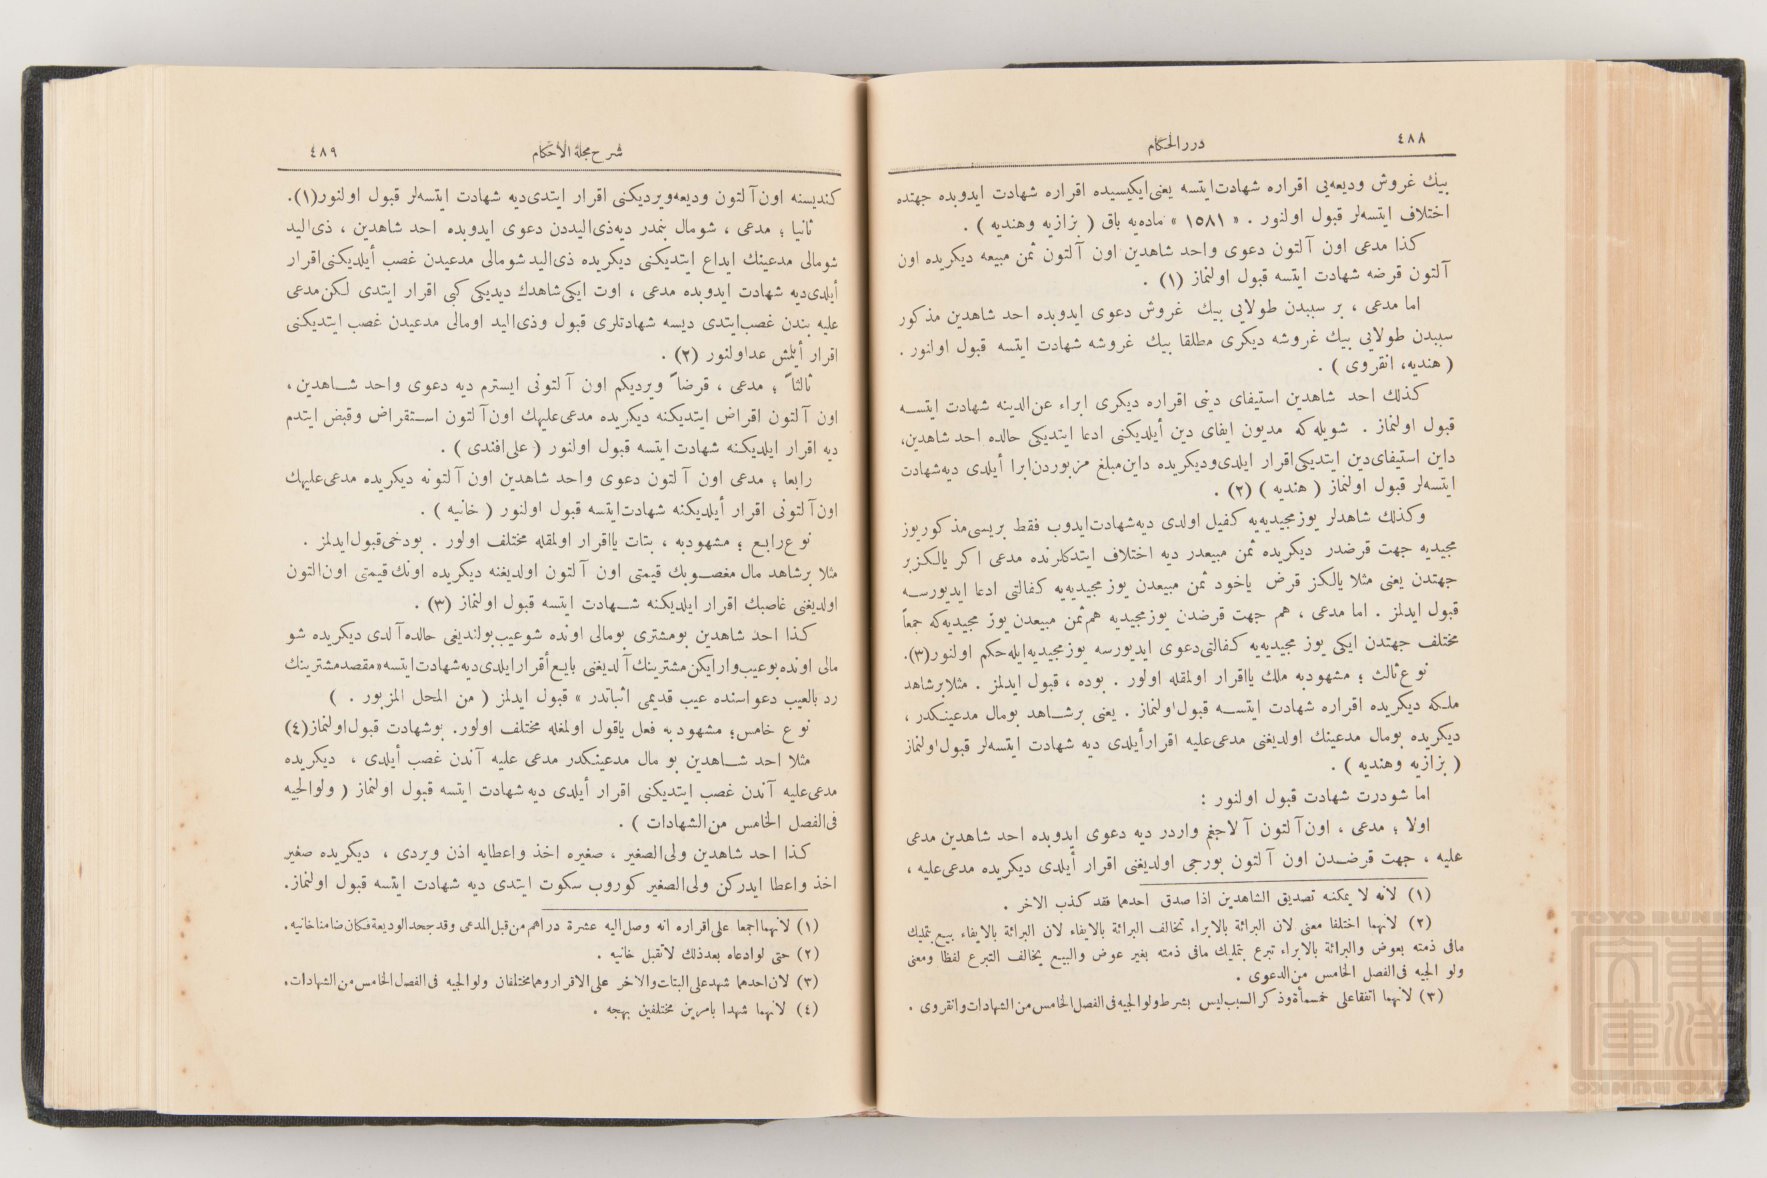 ٤٨٨
درر الحكام
بيك غروش وديعه‌يى اقراره شهادت ايتسه يعنى ايكيسيده اقراره شهادت ايدوبده جهتده
اختلاف ايتسه‌لر قبول اولنور . « ١٥٨١ » ماده‌يه باق ( بزازيه وهنديه ) .
كذا مدعى اون آلتون دعوى واحد شاهدين اون آلتون ثمن مبيعه ديكريده اون
آلتون قرضه شهادت ايتسه قبول اولنماز (١) .
اما مدعى ، بر سببدن طولايى بيك غروش دعوى ايدوبده احد شاهدين مذكور
سببدن طولايى بيك غروشه ديكرى مطلقا بيك غروشه شهادت ايتسه قبول اولنور .
( هنديه، انقروى ) .
كذلك احد شاهدين استيفاى دينى اقراره ديكرى ابراء عن الدينه شهادت ايتسه
قبول اولنماز . شويله‌كه مديون ايفاى دين أيلديكنى ادعا ايتديكى حالده احد شاهدين،
داين استيفاى‌دين ايتديكى‌اقرار ايلدى‌وديكريده داين‌مبلغ مزبوردن‌ابرا أيلدى ديه‌شهادت
ايتسه‌لر قبول اولنماز ( هنديه ) (٢) .
وكذلك شاهدلر يوزمجيديه‌يه كفيل اولدى ديه‌شهادت‌ايدوب فقط بريسى‌مذكور‌يوز
مجيديه جهت قرضدر ديكريده ثمن مبيعدر ديه اختلاف ايتدكلرنده مدعى اكر يالكزبر
جهتدن يعنى مثلا يالكز قرض ياخود ثمن مبيعدن يوز مجيديه‌يه كفالتى ادعا ايديورسه
قبول ايدلمز . اما مدعى ، هم جهت قرضدن يوزمجيديه هم‌ثمن مبيعدن يوز مجيديه‌كه جمعاً
مختلف جهتدن ايكى يوز مجيديه‌يه كفالتى‌دعوى ايديورسه يوزمجيديه‌ايله‌حكم اولنور(٣).
نوع‌ثالث ؛ مشهودبه ملك يااقرار اولمقله اولور . بوده ، قبول ايدلمز . مثلابرشاهد
ملكه ديكريده اقراره شهادت ايتسه قبول‌اولنماز . يعنى برشاهد بومال مدعينكدر ،
ديكريده بومال مدعينك اولديغنى مدعى‌عليه اقرارأيلدى ديه شهادت ايتسه‌لر قبول‌اولنماز
( بزازيه وهنديه ) .
اما شودرت شهادت قبول اولنور :
اولا ؛ مدعى ، اون‌آلتون آلاجغم واردر ديه دعوى ايدوبده احد شاهدين مدعى
عليه ، جهت قرضدن اون آلتون بورجى اولديغنى اقرار أيلدى ديكريده مدعى‌عليه ،
(١) لانه لا يمكنه تصديق الشاهدين اذا صدق احدهما فقد كذب الاخر .
(٢) لانهما اختلفا معنى لان البرائة بالابراء تخالف البرائة بالايفاء لان البرائة بالايفاء بيع‌بتمليك
مافى ذمته بعوض والبرائة بالابراء تبرع بتمليك مافى ذمته بغير عوض والبيع يخالف التبرع لفظا ومعنى
ولو الجيه فى‌الفصل الخامس من‌الدعوى .
(٣) لانهما اتفقاعلى خمسمأة‌وذكر السبب‌ليس بشرط‌ولوالجيه‌فى‌الفصل‌الخامس‌من‌الشهادات‌وانقروى .
شرح مجلة الأحكام
٤٨٩
كنديسنه اون‌آلتون وديعه‌ويرديكنى اقرار ايتدى‌ديه شهادت ايتسه‌لر قبول اولنور(١).
ثانيا ؛ مدعى ، شومال بنمدر ديه‌ذى‌اليددن دعوى ايدوبده احد شاهدين ، ذى‌اليد
شومالى مدعينك ايداع ايتديكنى ديكريده ذى‌اليد شومالى مدعيدن غصب أيلديكنى‌اقرار
أيلدى‌ديه شهادت ايدوبده مدعى ، اوت ايكى‌شاهدك ديديكى كبى اقرار ايتدى لكن‌مدعى
عليه بندن غصب‌ايتدى ديسه شهادتلرى قبول وذى‌اليد اومالى مدعيدن غصب ايتديكنى
اقرار أيلمش عداولنور (٢) .
ثالثاً ؛ مدعى ، قرضاً ويرديكم اون آلتونى ايسترم ديه دعوى واحد شاهدين ،
اون آلتون اقراض ايتديكنه ديكريده مدعى‌عليهك اون‌آلتون استقراض وقبض ايتدم
ديه اقرار ايلديكنه شهادت ايتسه قبول اولنور ( على‌افندى ) .
رابعا ؛ مدعى اون آلتون دعوى واحد شاهدين اون آلتونه ديكريده مدعى‌عليهك
اون‌آلتونى اقرار أيلديكنه شهادت‌ايتسه قبول اولنور ( خانيه ) .
نوع‌رابع ؛ مشهودبه ، بتات يااقرار اولمقله مختلف اولور . بودخى‌قبول‌ايدلمز .
مثلا برشاهد مال مغصوبك قيمتى اون آلتون اولديغنه ديكريده اونك‌قيمتى اون‌التون
اولديغنى غاصبك اقرار ايلديكنه شهادت ايتسه قبول اولنماز (٣) .
كذا احد شاهدين بومشترى بومالى اونده شوعيب‌بولنديغى حالده‌آلدى ديكريده شو
مالى اونده‌بوعيب‌وارايكن‌مشترينك‌آلديغنى بايع‌أقرارايلدى‌ديه‌شهادت‌ايتسه«مقصدمشترينك
رد بالعيب دعواسنده عيب قديمى اثباتدر » قبول ايدلمز ( من المحل المزبور . )
نوع خامس؛ مشهودبه فعل ياقول اولمغله مختلف اولور. بوشهادت قبول‌اولنماز(٤)
مثلا احد شاهدين بو مال مدعينكدر مدعى عليه آندن غصب أيلدى ، ديكريده
مدعى‌عليه آندن غصب ايتديكنى اقرار أيلدى ديه‌شهادت ايتسه قبول اولنماز ( ولوالجيه
فى‌الفصل الخامس من‌الشهادات ) .
كذا احد شاهدين ولى‌الصغير ، صغيره اخذ واعطايه اذن ويردى ، ديكريده صغير
اخذ واعطا ايدركن ولى‌الصغير كوروب سكوت ايتدى ديه شهادت ايتسه قبول اولنماز.
(١) لانهما اجمعا على‌اقراره انه وصل‌اليه عشرة دراهم من‌قبل‌المدعى وقد‌جحد‌الوديعة‌فكان‌ضامنا‌خانيه.
(٢) حتى لوادعاه بعدذلك لاتقبل خانيه .
(٣) لان‌احدهما شهدعلى‌البتات‌والاخر على‌الاقراروهمامختلفان ولوالجيه فى‌الفصل‌الخامس‌من‌الشهادات.
(٤) لانهما شهدا بامرين مختلفين بهجه .
TOYO BUNKO
東洋文庫
TOYO BUNKO